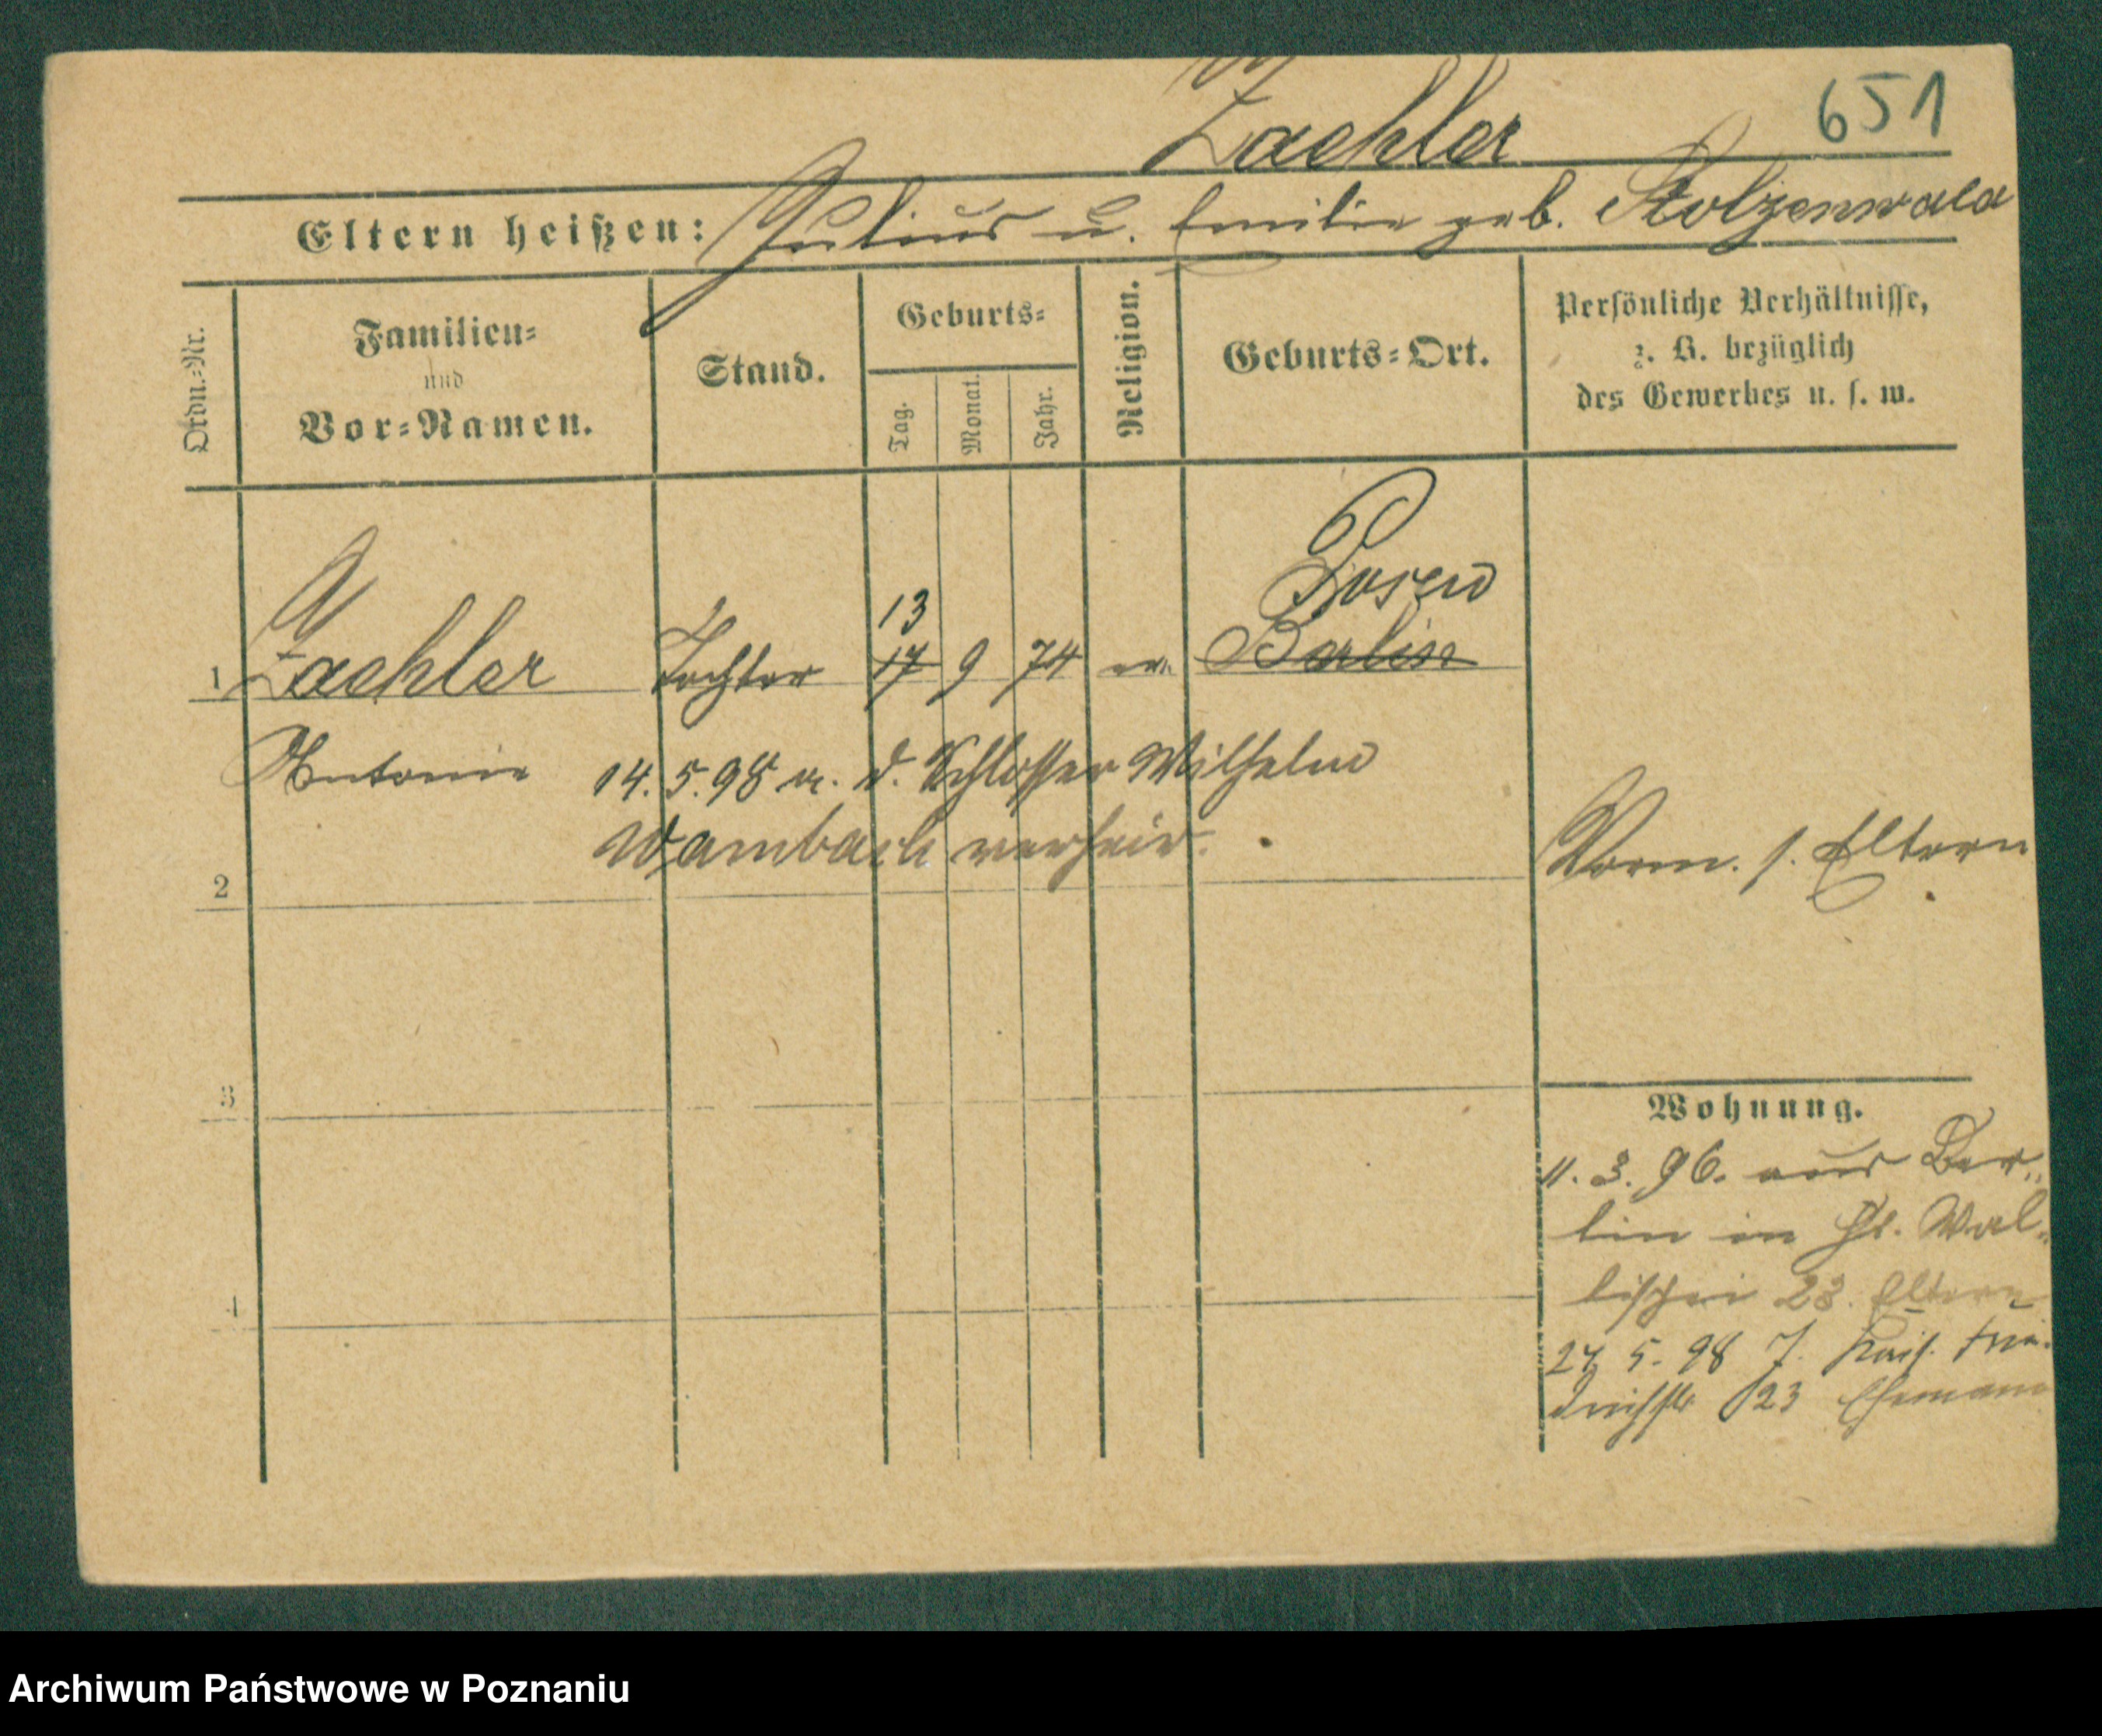 Zaehler
651
Eltern heißen: Julius u. Emilie geb. Stolzenwald
Ordn.-Nr.
Familien-
und
Vor-Namen.
Stand.
Geburts-
Tag.
Monat.
Jahr.
Religion.
Geburts-Ort.
Persönliche Verhältnisse,
z. B. bezüglich
des Gewerbes u. s. w.
Posen
13
1 Zaehler Tochter 17 9 74 ev. Berlin
Antonie 14.5.98 m. d. Schlosser Wilhelm
Wambach verheir.
Vorm. s. Eltern
2
3
4
Wohnung.
11. 3. 96. aus Ber-
lin in Wal-
lischei 23. Eltern
27 5. 98 7. Kais. Frie-
drichstr 23 Ehemann
Archiwum Państwowe w Poznaniu